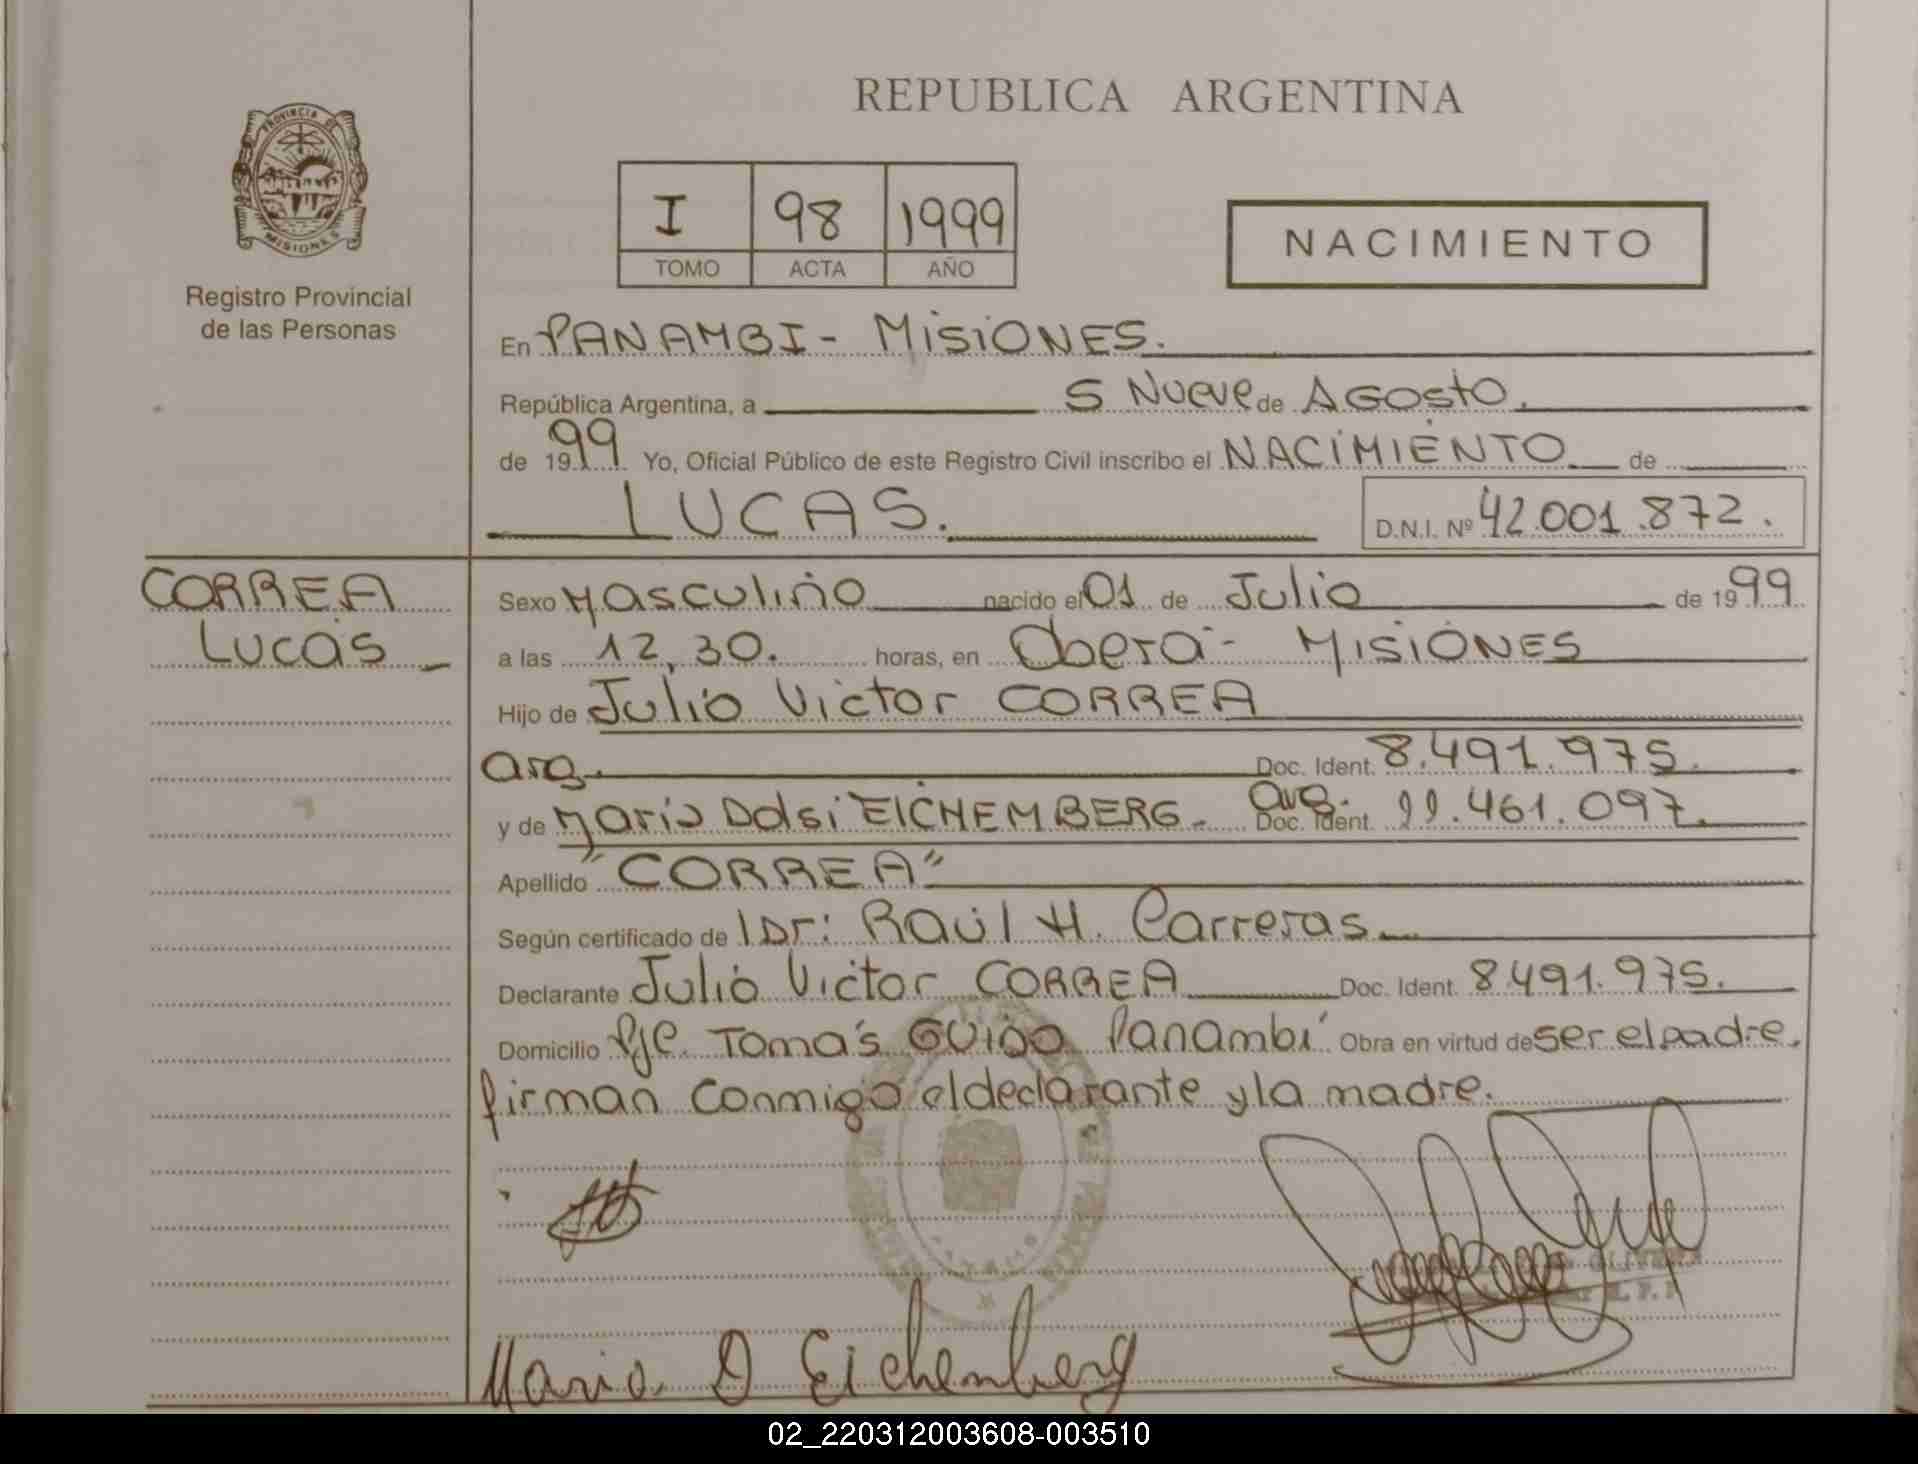 REPUBLICA ARGENTINA
PROVINCIA DE
MISIONES
Registro Provincial
de las Personas
I 98 1999
TOMO ACTA AÑO
NACIMIENTO
En PANAMBI - MISIONES.
República Argentina, a 5 Nueve de AGOSTO.
de 1999 Yo, Oficial Público de este Registro Civil inscribo el NACIMIENTO de
LUCAS.
D.N.I. Nº 42.001.872.
CORREA
Lucas
Sexo Masculino nacido el 01 de Julio de 1999
a las 12,30. horas, en Oberá - MISIONES
Hijo de Julio Victor CORREA
arg. Doc. Ident. 8.491.975.
y de María Dolsi EICHEMBERG. arg. Doc. Ident. 11.461.097.
Apellido "CORREA"
Según certificado de Dr: Raúl H. Carreras
Declarante Julio Victor CORREA Doc. Ident. 8.491.975.
Domicilio Pje. Tomás GUIDO Panambí Obra en virtud de ser el padre.
firman conmigo el declarante y la madre.
OLIVERA
Maria D Eichenberg
02_220312003608-003510